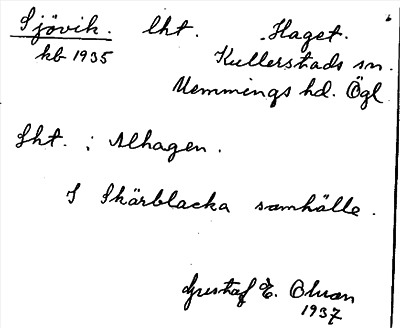 Sjövik. lht. Haget.
kb 1935 Kullerstads sn.
Memmings hd. Ögl
Lht. i Alhagen.
I Skärblacka samhälle.
Gustaf E. Ohman
1937